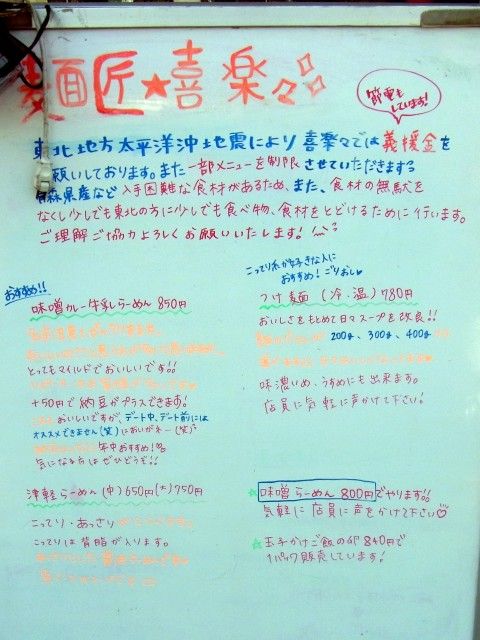 麺匠★喜楽々
節電もしています!
東北地方太平洋沖地震により喜楽々では義援金を
願いしております。また一部メニューを制限させていただきます
青森県産など入手困難な食材があるため、また、食材の無駄を
なくし少しでも東北の方に少しでも食べ物、食材をとどけるために行います。
ご理解ご協力よろしくお願いいたします!
おすすめ!!
味噌カレー牛乳らーめん 850円
とってもマイルドでおいしいです!!
+50円で納豆がプラスできます!
おいしいですが、デート中、デート前には
オススメできません(笑)においがネー(笑)
年中おすすめ!
気になる方はぜひどうぞ!!
津軽らーめん(中)650円(大)750円
こってり・あっさり
こってりは背脂が入ります。
こってり系が好きな人に
おすすめ!ごりおし♡
つけ麺(冷、温)780円
おいしさをもとめて日々スープを改良!!
200g、300g、400g
味濃いめ、うすめにも出来ます。
店員に気軽に声かけて下さい!
☆味噌らーめん800円でやります!!
気軽に店員に声をかけて下さい♡
☆玉子かけご飯の卵840円で
1パック販売しています!